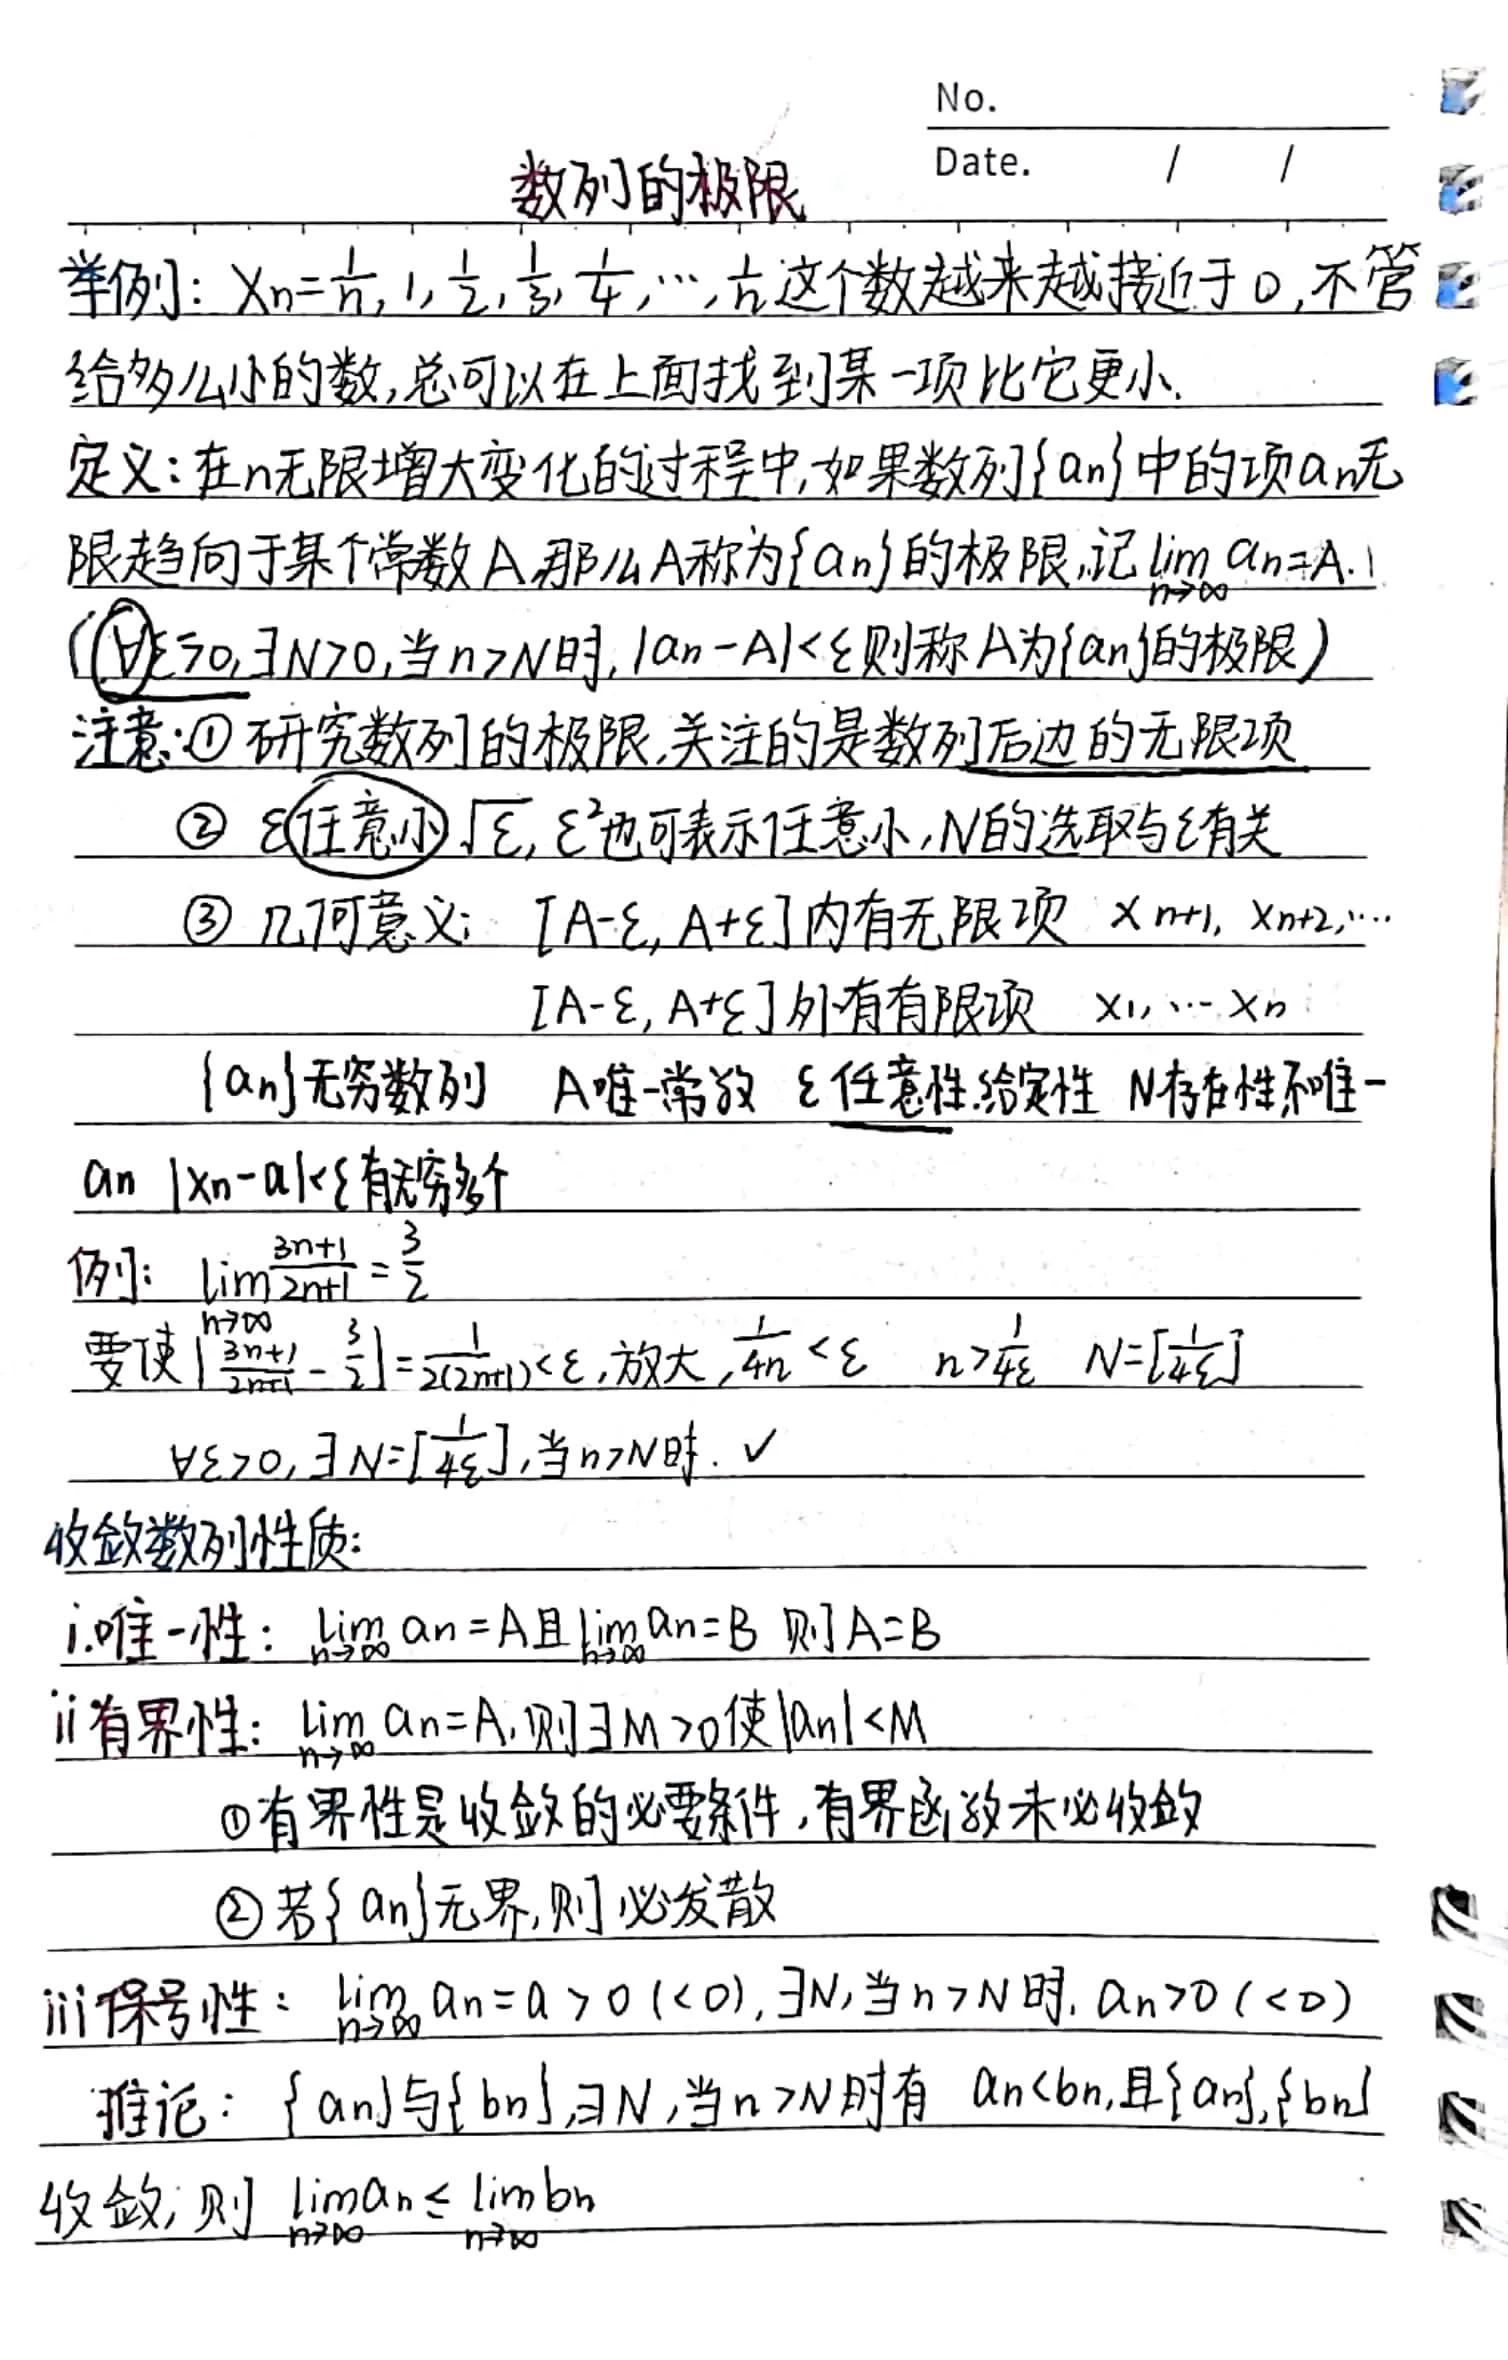 No.
Date. / /
数列的极限
举例：Xn=1/n, 1, 1/2, 1/3, 1/4, …, 1/n 这个数越来越接近于0,不管
给多么小的数,总可以在上面找到某一项比它更小.
定义：在n无限增大变化的过程中,如果数列{an}中的项an无
限趋向于某个常数A,那么A称为{an}的极限,记 lim n→∞ an=A.
(∀ε>0,∃N>0,当n>N时,|an-A|<ε则称A为{an}的极限)
注意:①研究数列的极限,关注的是数列后边的无限项
② ε任意小 √ε, ε²也可表示任意小,N的选取与ε有关
③ 几何意义: [A-ε, A+ε]内有无限项 Xn+1, Xn+2,…
[A-ε, A+ε]外有有限项 X1,…Xn
{an}无穷数列 A唯一常数 ε任意性.给定性 N存在性不唯一
an |Xn-a|<ε有无穷多个
例: lim n→∞ (3n+1)/(2n+1) = 3/2
要使|(3n+1)/(2n+1) - 3/2|=1/(2(2n+1))<ε,放大,1/(4n)<ε n>1/(4ε) N=[1/(4ε)]
∀ε>0,∃N=[1/(4ε)],当n>N时. ✓
收敛数列性质:
i.唯一性: lim n→∞ an=A且lim n→∞ an=B 则A=B
ii有界性: lim n→∞ an=A,则∃M>0使|an|<M
①有界性是收敛的必要条件,有界函数未必收敛
②若{an}无界,则必发散
iii保号性: lim n→∞ an=a>0(<0),∃N,当n>N时,an>0(<0)
推论: {an}与{bn},∃N,当n>N时有 an<bn,且{an},{bn}
收敛,则 lim n→∞ an≤lim n→∞ bn